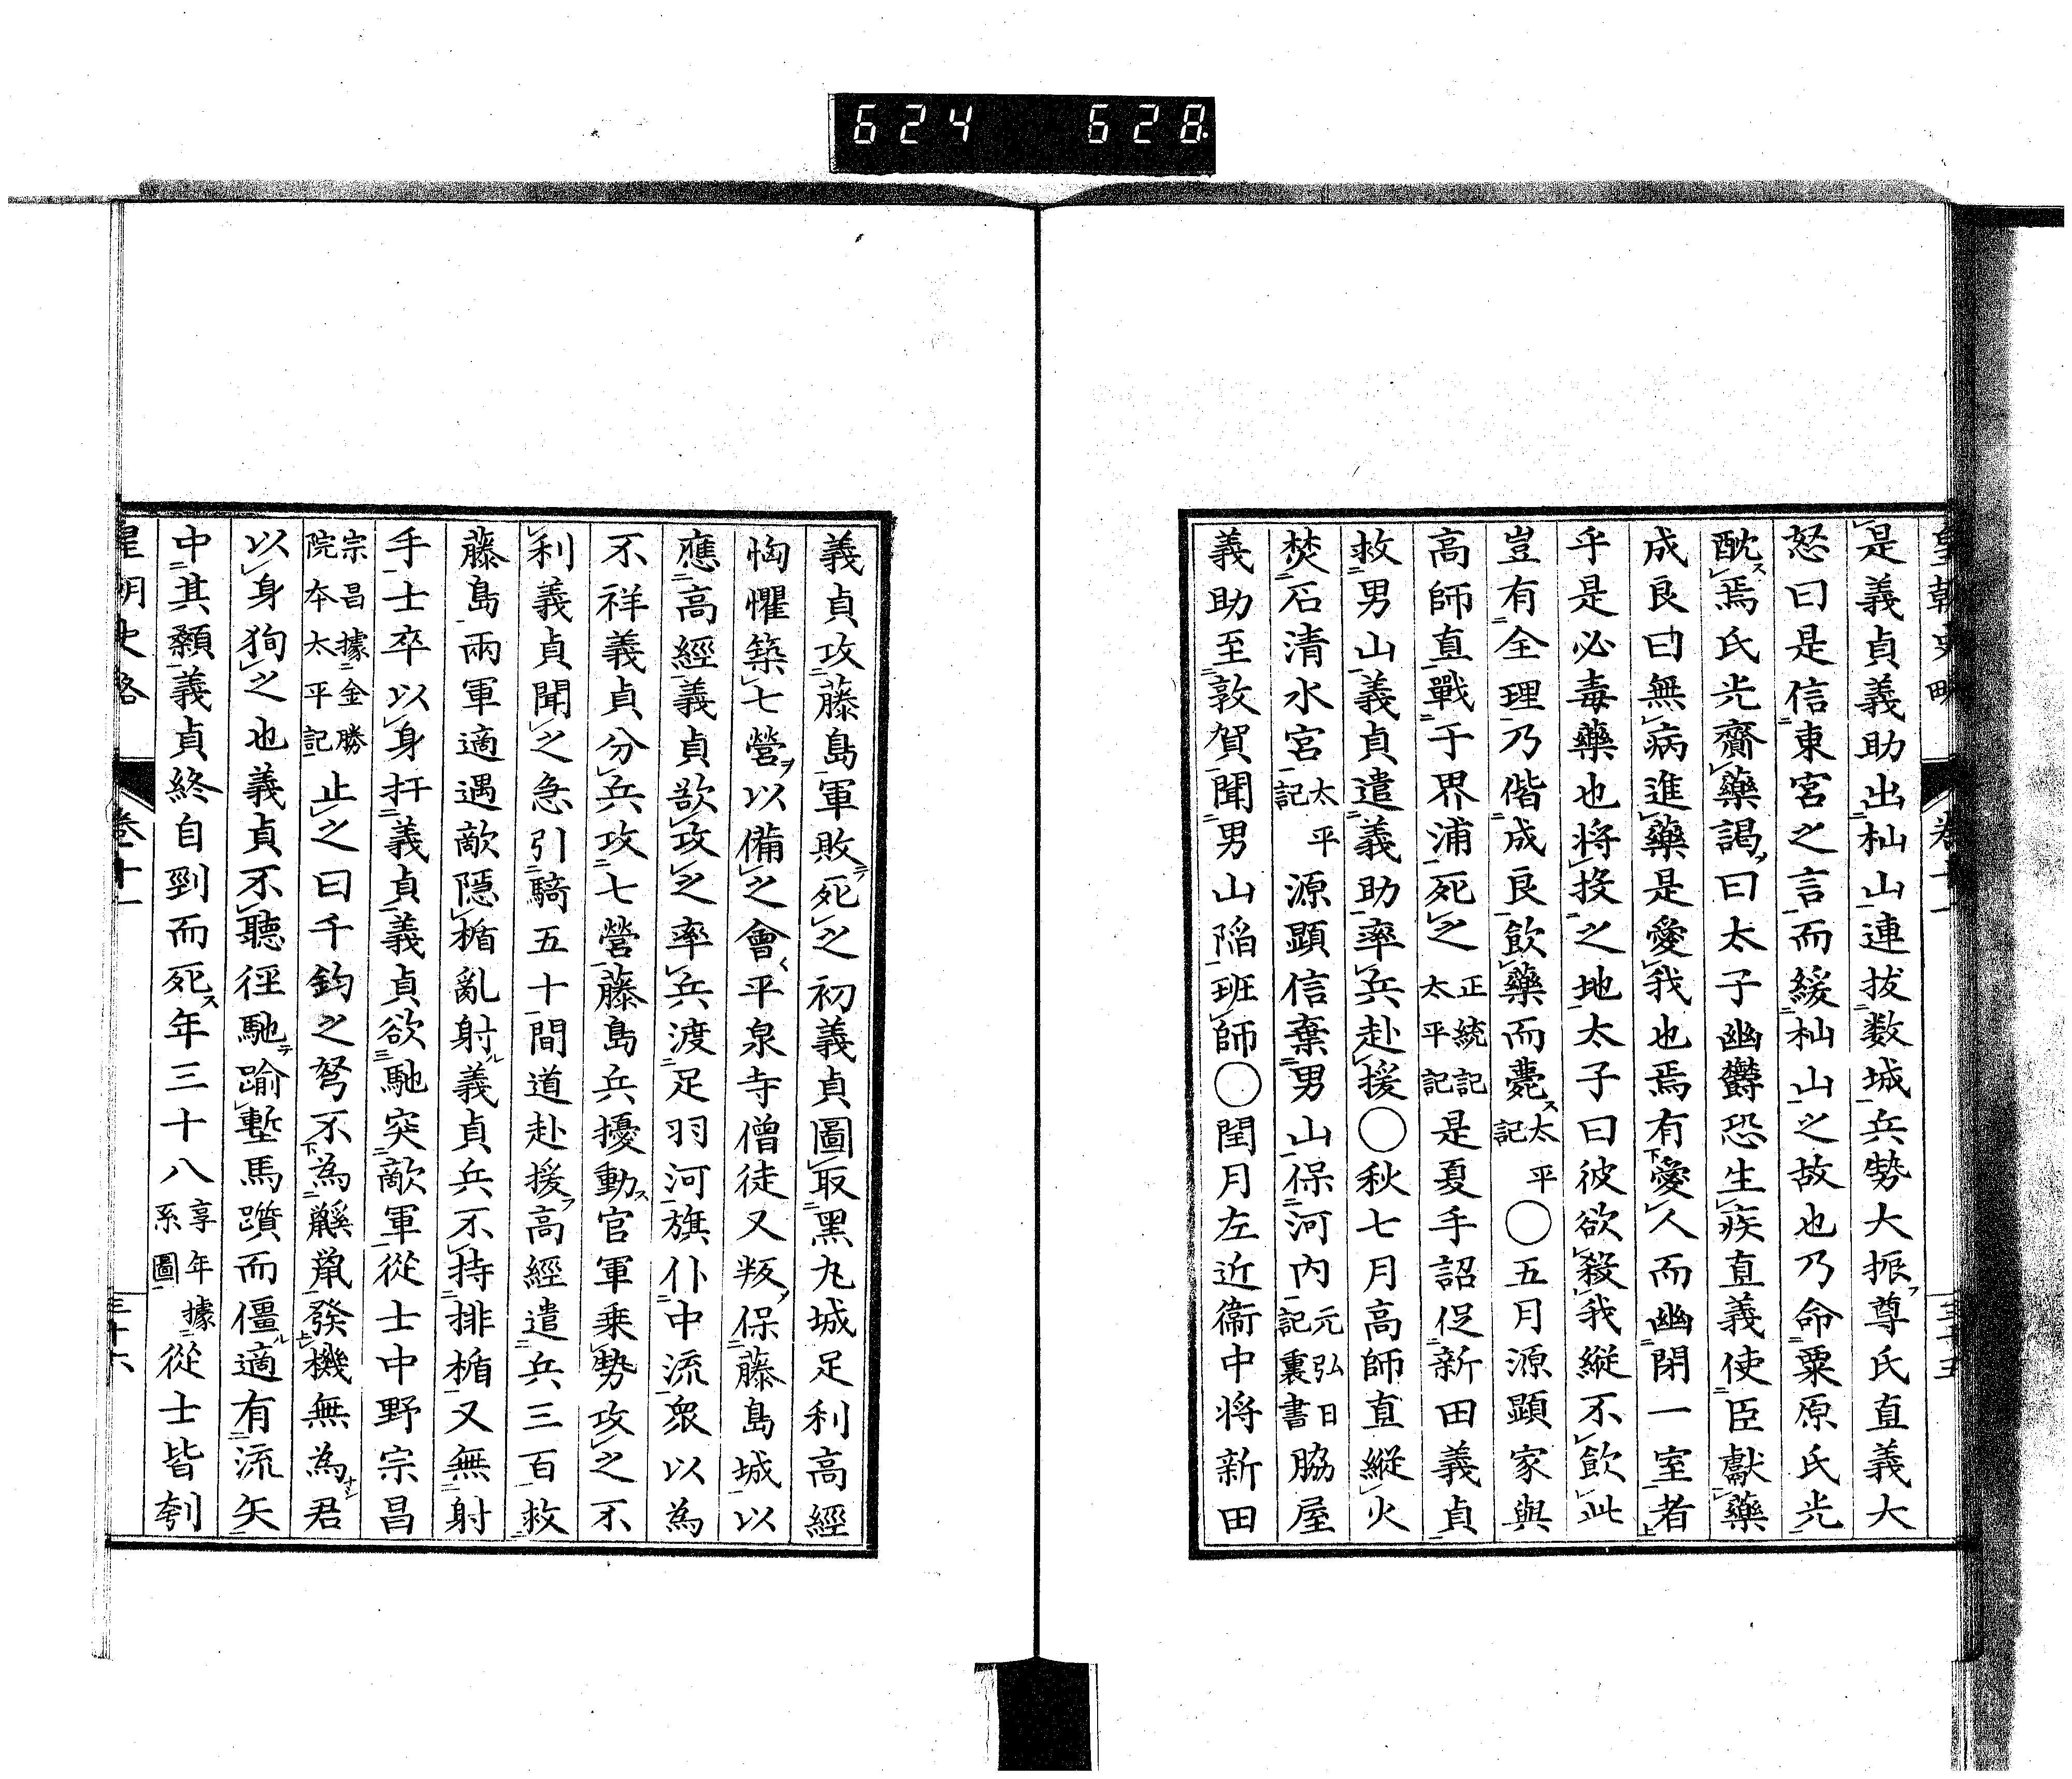 624 628
是義貞義助出杣山連拔数城兵勢大振尊氏直義大
怒曰是信東宮之言而緩杣山之故也乃命粟原氏光
酖焉氏光齎藥謁曰太子幽欝恐生疾直義使臣獻藥
成良曰無病進藥是愛我也焉有愛人而幽閉一室者
乎是必毒藥也将投之地太子曰彼欲殺我縱不飲此
豈有全理乃偕成良飲藥而薨太平記〇五月源顕家與
高師直戰于界浦死之正統記太平記是夏手詔促新田義貞
救男山義貞遣義助率兵赴援〇秋七月高師直縱火
焚石清水宮太平記源顕信棄男山保河内元弘日記裏書脇屋
義助至敦賀聞男山陥班師〇閏月左近衞中将新田
義貞攻藤島軍敗死之初義貞圖取黑丸城足利高經
恟懼築七營以備之會平泉寺僧徒又叛保藤島城以
應高經義貞欲攻之率兵渡足羽河旗仆中流衆以為
不祥義貞分兵攻七營藤島兵擾動官軍乗勢攻之不
利義貞聞之急引騎五十間道赴援高經遣兵三百救
藤島兩軍適遇敵隠楯亂射義貞兵不持排楯又無射
手士卒以身扞義貞義貞欲馳突敵軍從士中野宗昌
宗昌據金勝院本太平記止之曰千鈞之弩不為鼷鼠發機無為君
以身狥之也義貞不聽徑馳踰塹馬躓而僵適有流矢
中其顙義貞終自剄而死年三十八享年據系圖從士皆刳
皇朝史略 卷十一 三十六